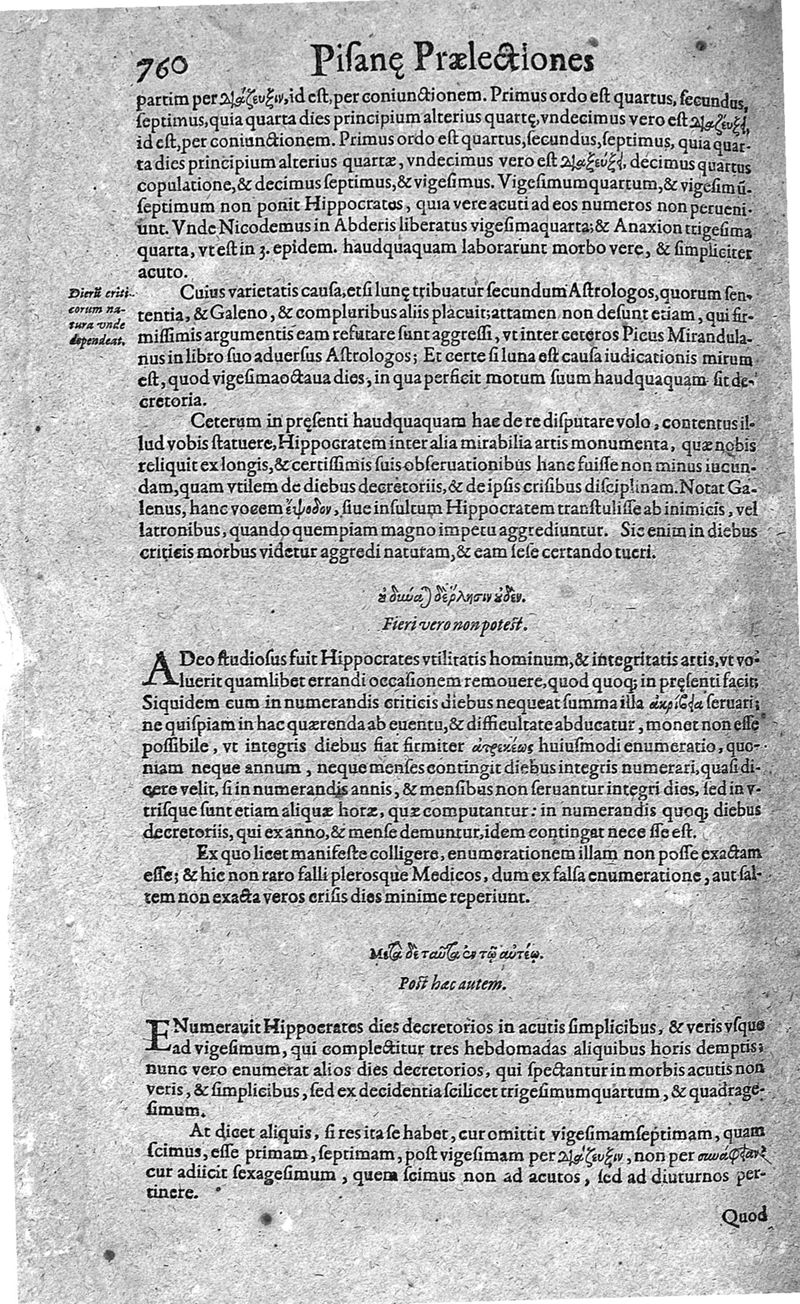 760 Piſanę Prælectiones
partim per διάζευξιν, id eſt, per coniunctionem. Primus ordo eſt quartus, ſecundus,
ſeptimus, quia quarta dies principium alterius quartę, vndecimus vero eſt
id eſt, per coniunctionem. Primus ordo eſt quartus, ſecundus, ſeptimus, quia quar-
ta dies principium alterius quartæ, vndecimus vero eſt decimus quartus
copulatione, & decimus ſeptimus, & vigeſimus. Vigeſimumquartum, & vigeſimū-
ſeptimum non ponit Hippocrates, quia vere acuti ad eos numeros non perueni-
unt. Vnde Nicodemus in Abderis liberatus vigeſimaquarta; & Anaxion trigeſima
quarta, vt eſt in 3. epidem. haudquaquam laborarunt morbo vere, & ſimpliciter
acuto.
Dierū criti-
corum na-
tura vnde
dependeat.
Cuius varietatis cauſa, etſi lunę tribuatur ſecundum Aſtrologos, quorum ſen-
tentia, & Galeno, & compluribus aliis placuit; attamen non deſunt etiam, qui fir-
miſſimis argumentis eam refutare ſunt aggreſſi, vt inter ceteros Picus Mirandula-
nus in libro ſuo aduerſus Aſtrologos; Et certe ſi luna eſt cauſa iudicationis mirum
eſt, quod vigeſimaoctaua dies, in qua perficit motum ſuum haudquaquam ſit de-
cretoria.
Ceterum in pręſenti haudquaquam hac de re diſputare volo, contentus il-
lud vobis ſtatuere, Hippocratem inter alia mirabilia artis monumenta, quæ nobis
reliquit ex longis, & certiſſimis ſuis obſeruationibus hanc fuiſſe non minus iucun-
dam, quam vtilem de diebus decretoriis, & de ipſis criſibus diſciplinam. Notat Ga-
lenus, hanc vocem ἔφοδον, ſiue inſultum Hippocratem tranſtuliſſe ab inimicis, vel
latronibus, quando quempiam magno impetu aggrediuntur. Sic enim in diebus
criticis morbus videtur aggredi naturam, & eam ſeſe certando tueri.
Fieri vero non poteſt.
ADeo ſtudioſus fuit Hippocrates vtilitatis hominum, & integritatis artis, vt vo-
luerit quamlibet errandi occaſionem remouere, quod quoq; in pręſenti facit;
Siquidem cum in numerandis criticis diebus nequeat ſumma illa ἀκρίβεια ſeruari;
ne quiſpiam in hac quærenda ab euentu, & difficultate abducatur, monet non eſſe
poſſibile, vt integris diebus fiat firmiter ἀτρεκέως huiuſmodi enumeratio, quo-
niam neque annum, neque menſes contingit diebus integris numerari, quaſi di-
cere velit, ſi in numerandis annis, & menſibus non ſeruantur integri dies, ſed in v-
triſque ſunt etiam aliquæ horæ, quæ computantur: in numerandis quoq; diebus
decretoriis, qui ex anno, & menſe demuntur, idem contingat neceſſe eſt.
Ex quo licet manifeſte colligere, enumerationem illam non poſſe exactam
eſſe; & hic non raro falli plerosque Medicos, dum ex falſa enumeratione, aut ſal-
tem non exacta veros criſis dies minime reperiunt.
Μετὰ δὲ ταῦτα ἐν τῷ αὐτέῳ.
Poſt hac autem.
ENumerauit Hippocrates dies decretorios in acutis ſimplicibus, & veris vſque
ad vigeſimum, qui complectitur tres hebdomadas aliquibus horis demptis;
nunc vero enumerat alios dies decretorios, qui ſpectantur in morbis acutis non
veris, & ſimplicibus, ſed ex decidentia ſcilicet trigeſimumquartum, & quadrage-
ſimum.
At dicet aliquis, ſi res ita ſe habet, cur omittit vigeſimamſeptimam, quam
ſcimus, eſſe primam, ſeptimam, poſt vigeſimam per διάζευξιν, non per
cur adiicit ſexageſimum, quem ſcimus non ad acutos, ſed ad diuturnos per-
tinere.
Quod